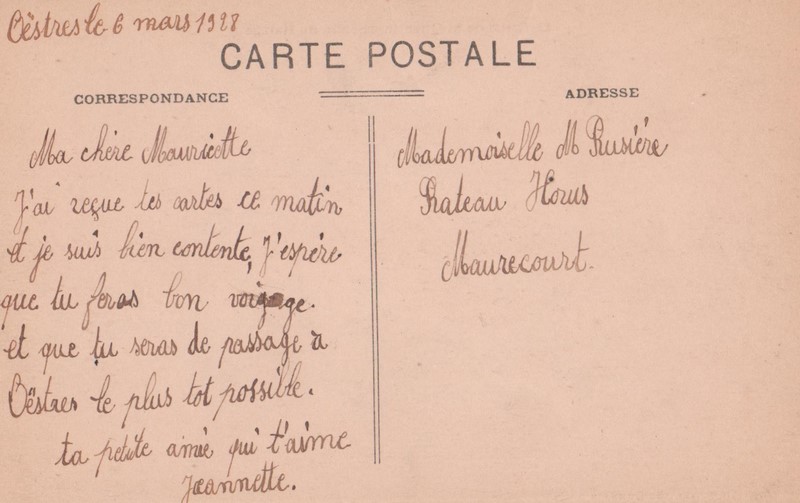 Oëstres le 6 mars 1928
CARTE POSTALE
CORRESPONDANCE
ADRESSE
Ma chère Mauricette
J'ai reçue tes cartes ce matin
et je suis bien contente, J'espère
que tu feras bon voyage.
et que tu seras de passage à
Oëstres le plus tot possible.
ta petite amie qui t'aime
Jeannette.
Mademoiselle M Rusière
Bateau Horus
Maurecourt.